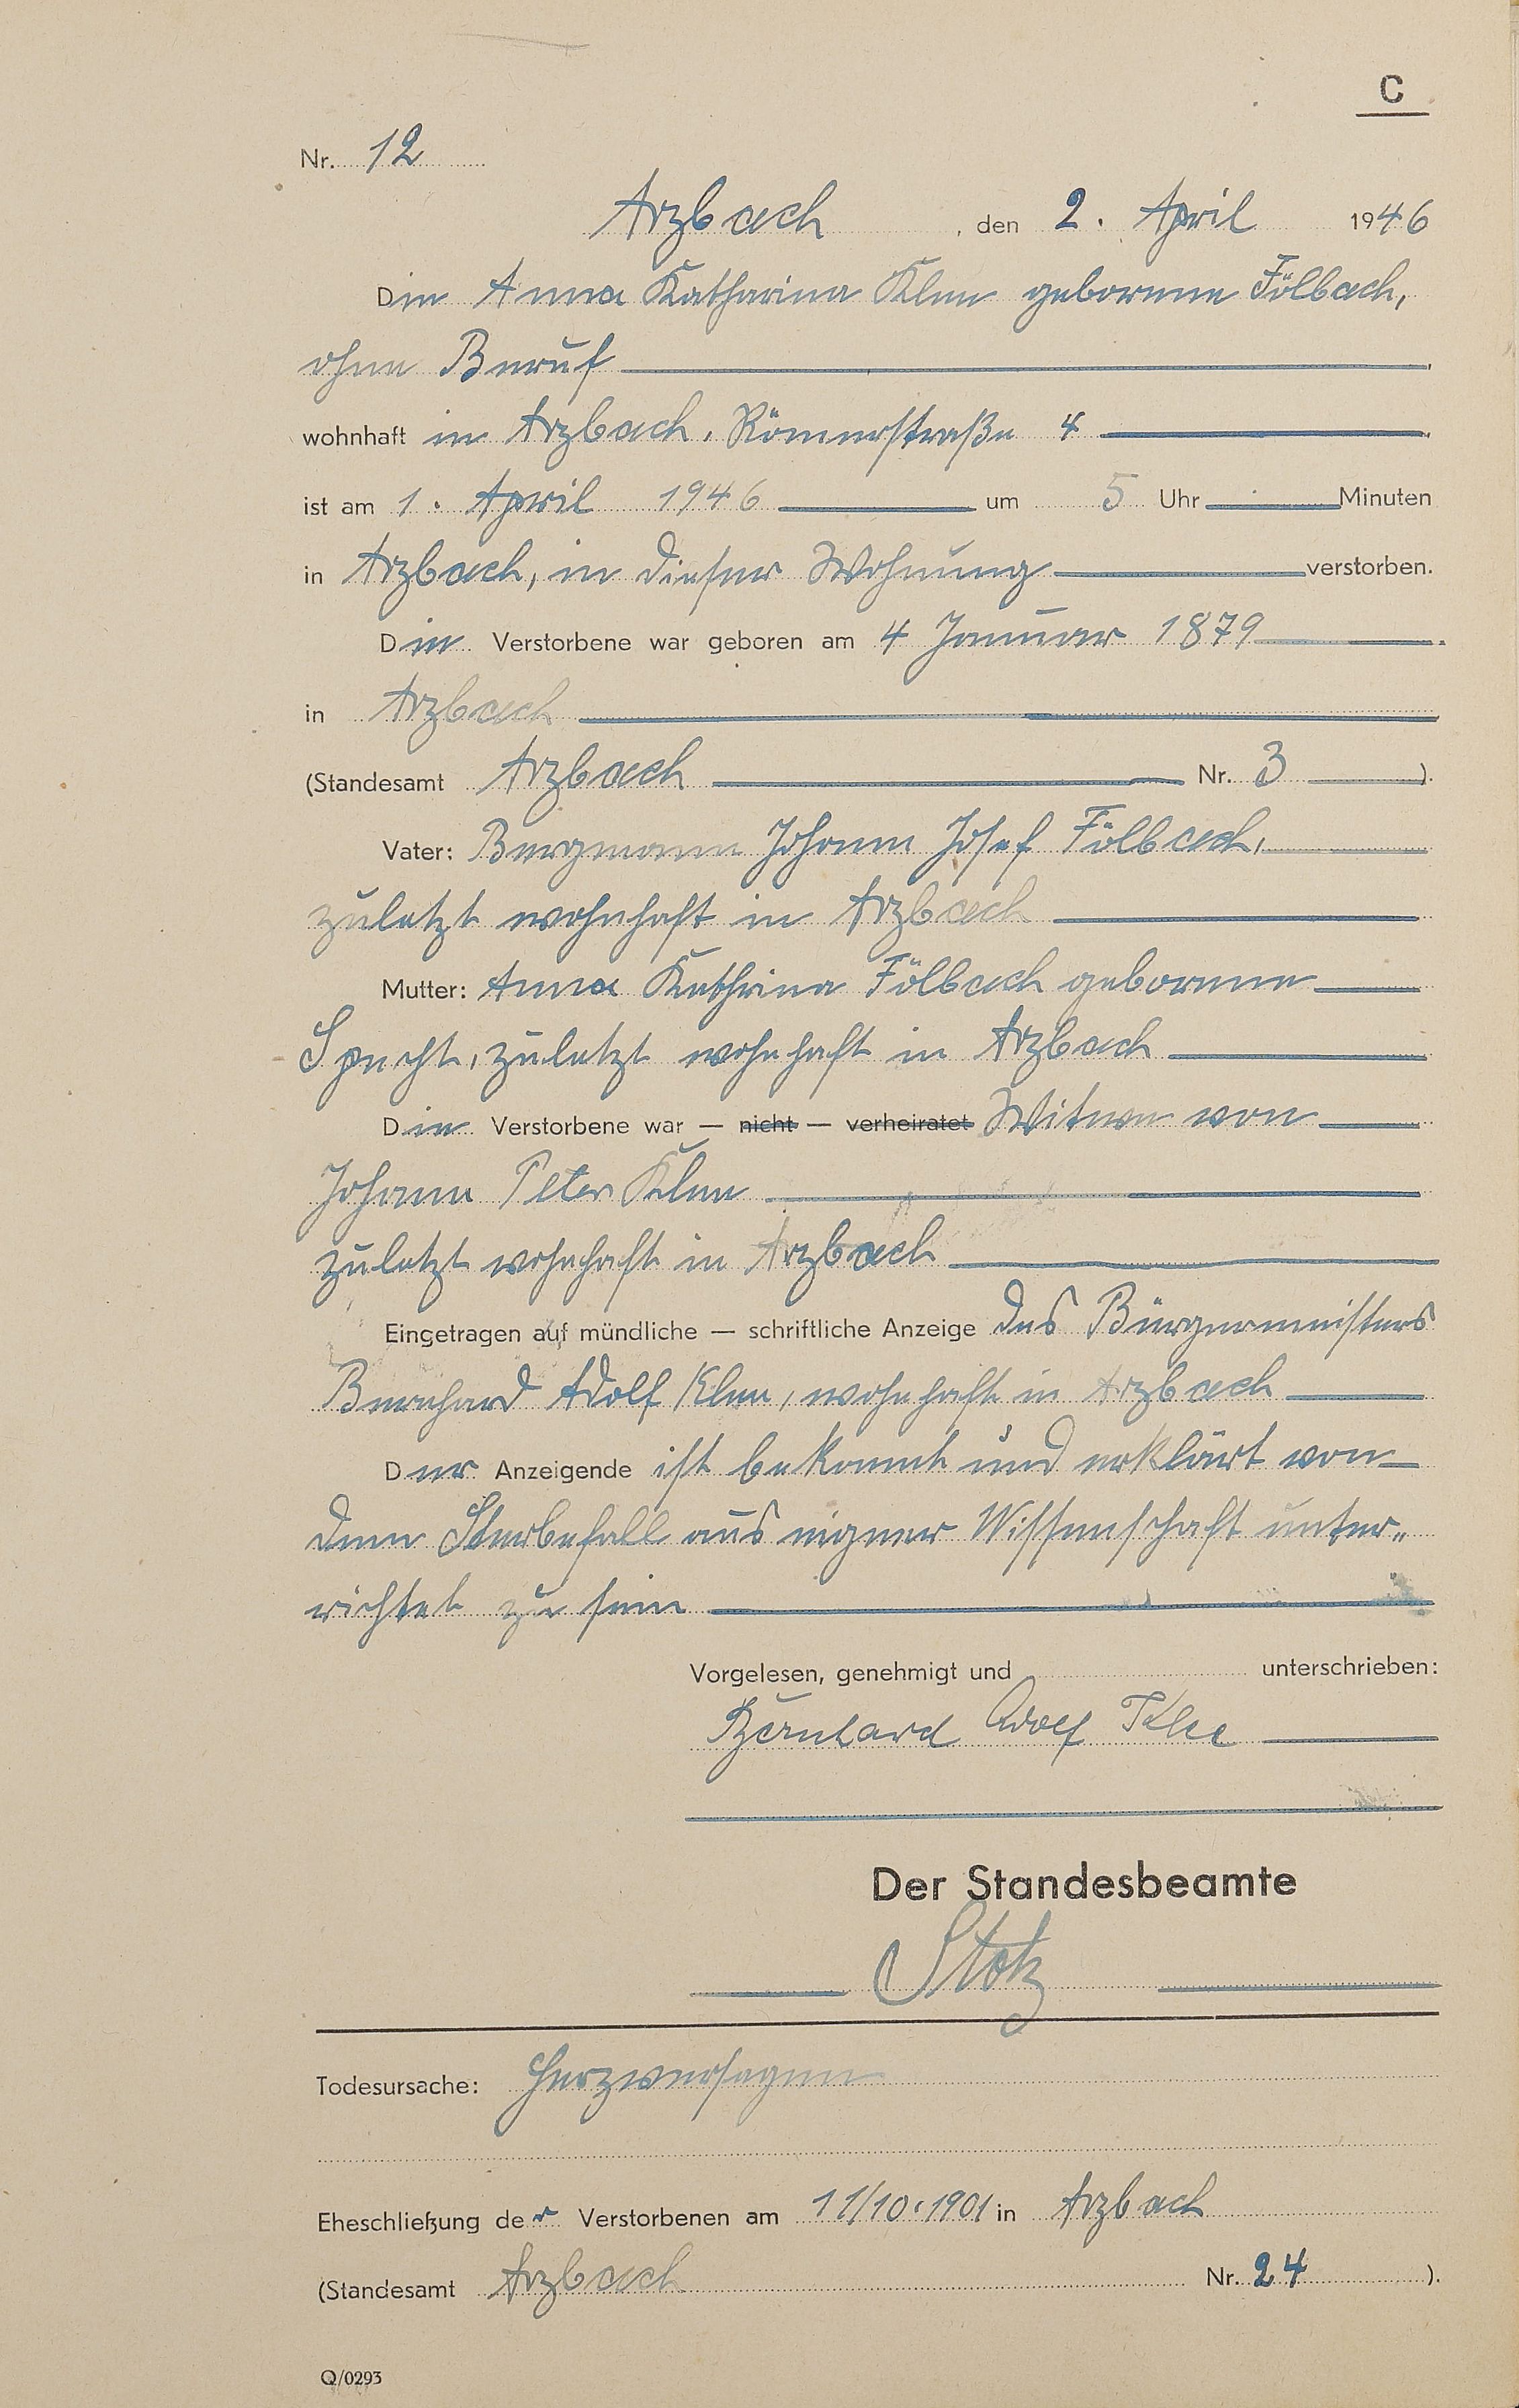 C
Nr. 12
Arzbach, den 2. April 1946
Die Anna Katharina Klee geborene Fölbach,
ohne Beruf
wohnhaft in Arzbach, Römerstraße 4
ist am 1. April 1946 um 5 Uhr Minuten
in Arzbach, in dieser Wohnung verstorben.
Die Verstorbene war geboren am 4 Januar 1879
in Arzbach
(Standesamt Arzbach Nr. 3 ).
Vater: Bergmann Johann Josef Fölbach,
zuletzt wohnhaft in Arzbach
Mutter: Anna Kathrina Fölbach geborene
Specht, zuletzt wohnhaft in Arzbach
Die Verstorbene war — nicht — verheiratet Witwe von
Johann Peter Klee
zuletzt wohnhaft in Arzbach
Eingetragen auf mündliche — schriftliche Anzeige des Bürgermeisters
Bernhard Adolf Klee, wohnhaft in Arzbach
Der Anzeigende ist bekannt und erklärt von
dem Sterbefall aus eigner Wissenschaft unter„
richtet zu sein
Vorgelesen, genehmigt und unterschrieben:
Bernhard Adolf Klee
Der Standesbeamte
Stotz
Todesursache: Herzversagen
Eheschließung der Verstorbenen am 11/10.1901 in Arzbach
(Standesamt Arzbach Nr. 24 ).
Q/0293